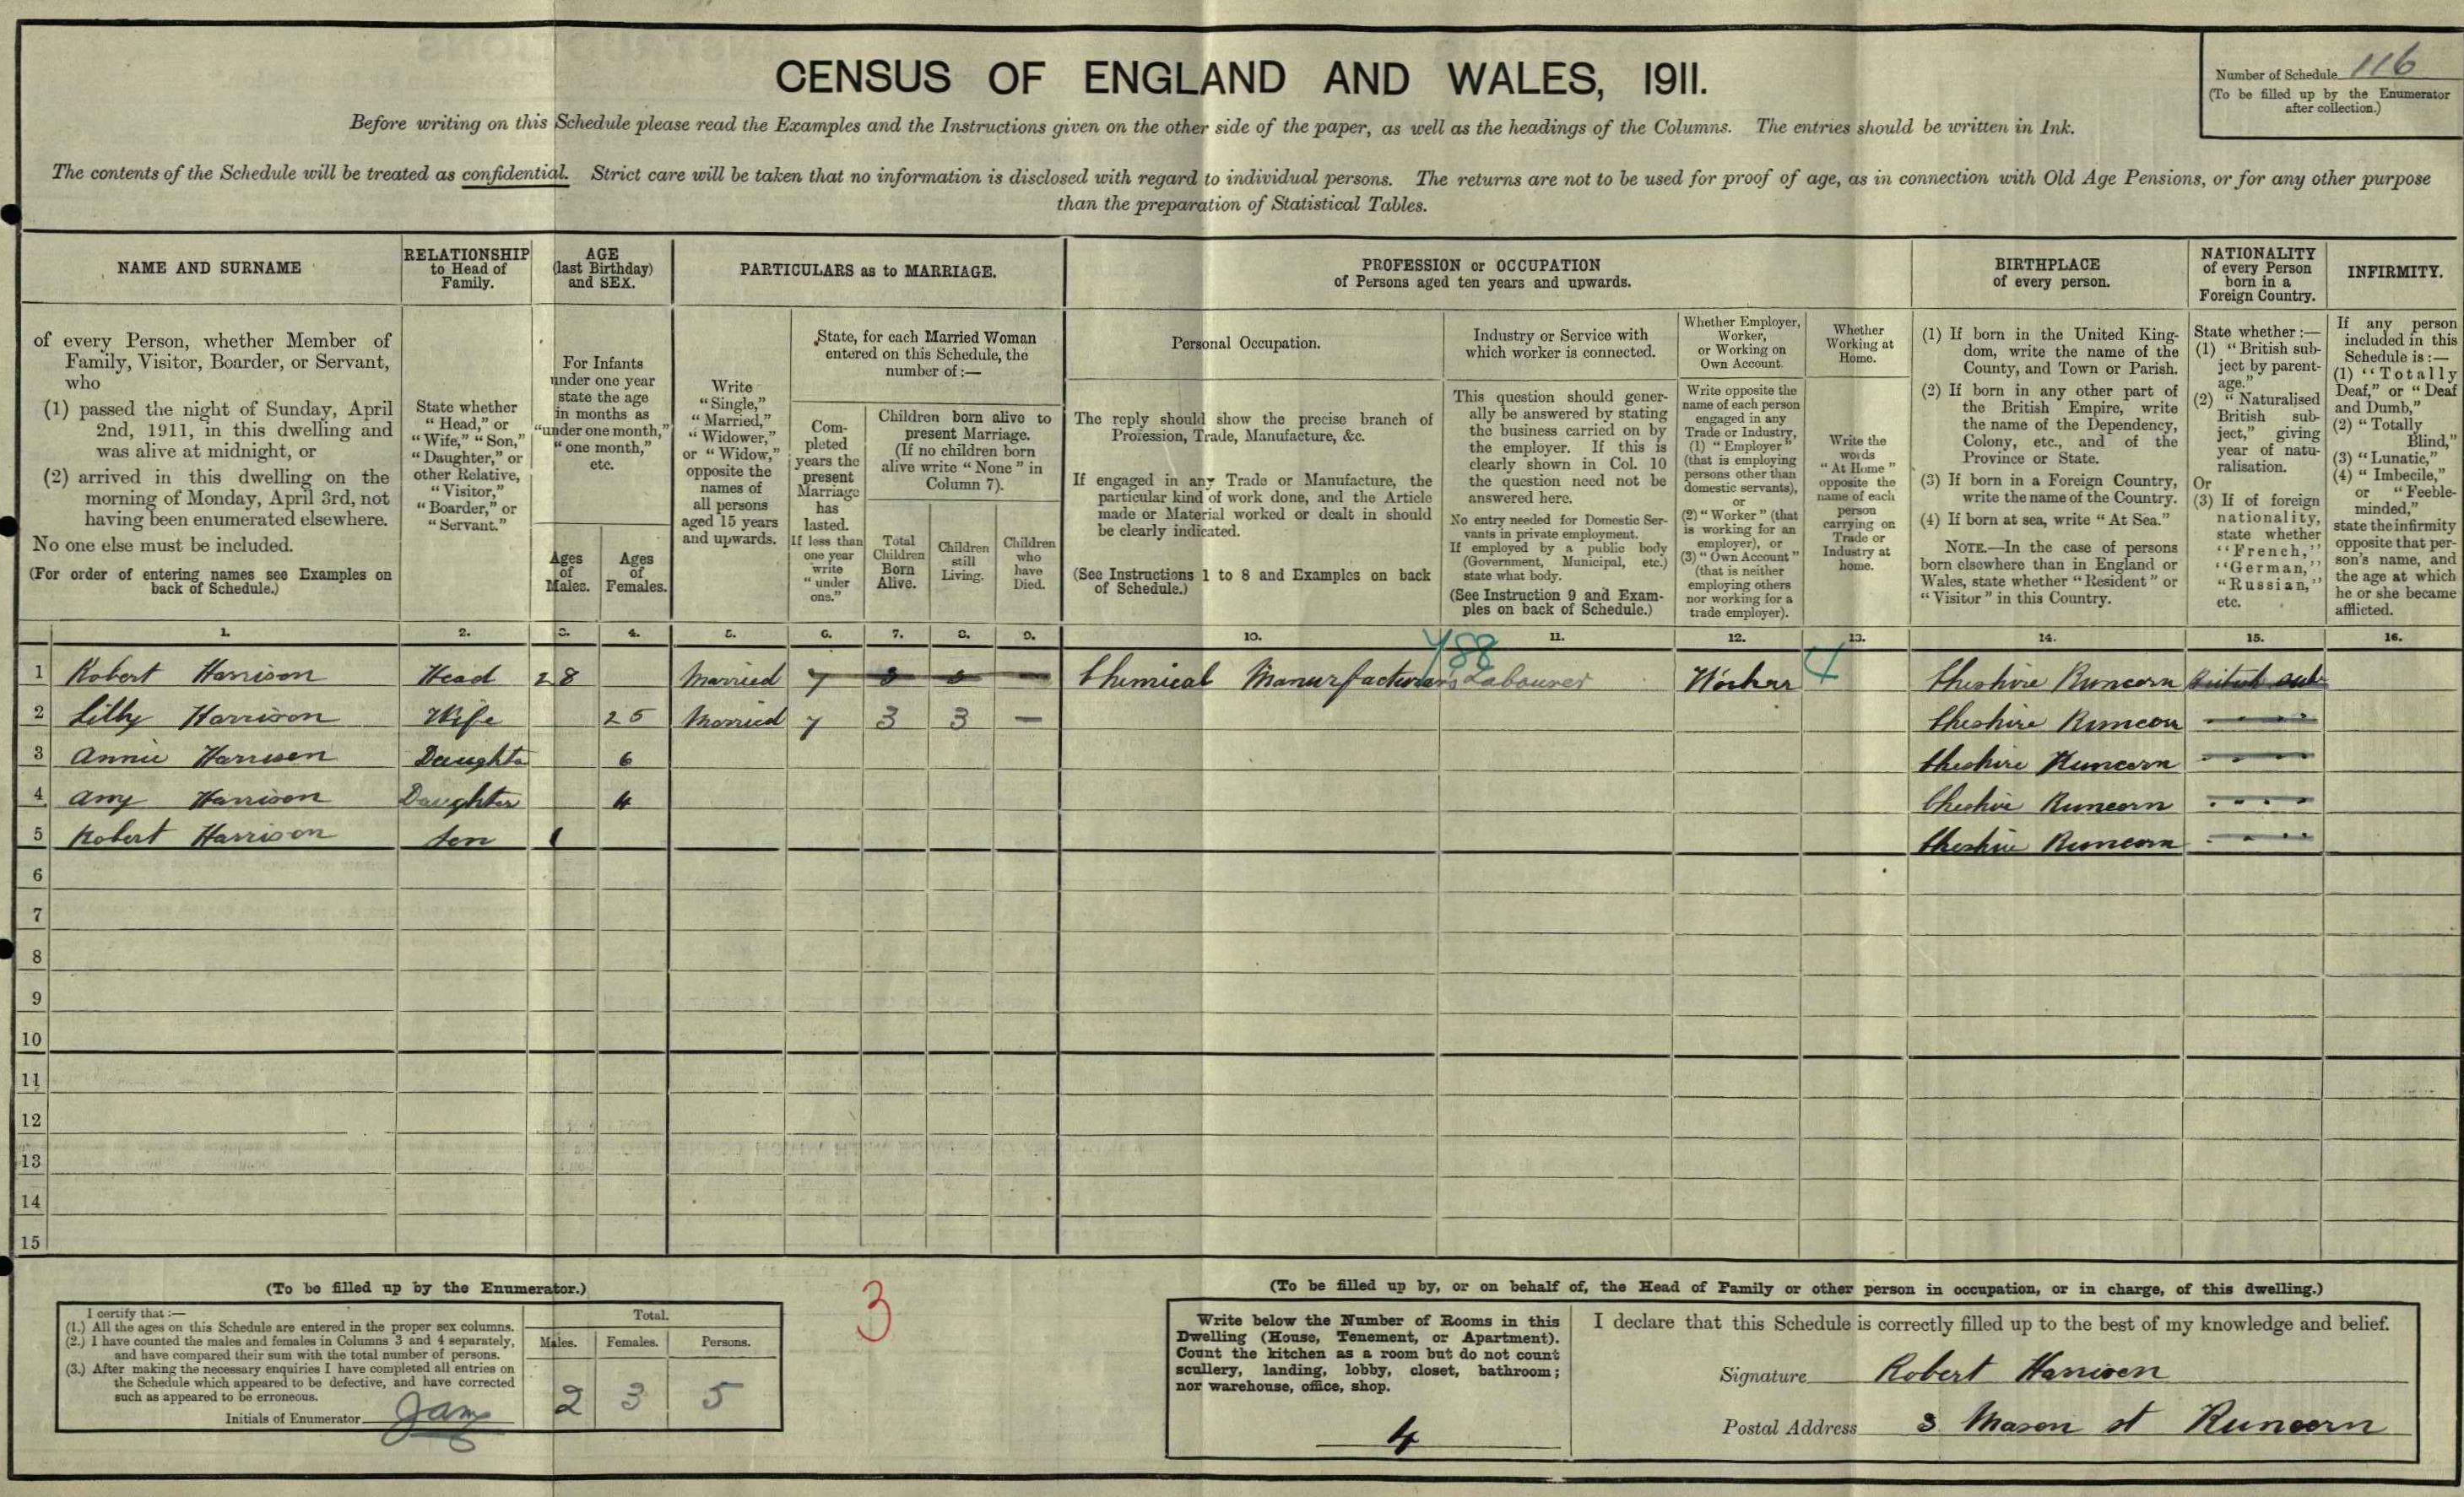 CENSUS OF ENGLAND AND WALES, 1911.
Number of Schedule 116
(To be filled up by the Enumerator
after collection.)
Before writing on this Schedule please read the Examples and the Instructions given on the other side of the paper, as well as the headings of the Columns. The entries should be written in Ink.
The contents of the Schedule will be treated as confidential. Strict care will be taken that no information is disclosed with regard to individual persons. The returns are not to be used for proof of age, as in connection with Old Age Pensions, or for any other purpose
than the preparation of Statistical Tables.
NAME AND SURNAME
of every Person, whether Member of
Family, Visitor, Boarder, or Servant,
who
(1) passed the night of Sunday, April
2nd, 1911, in this dwelling and
was alive at midnight, or
(2) arrived in this dwelling on the
morning of Monday, April 3rd, not
having been enumerated elsewhere.
No one else must be included.
(For order of entering names see Examples on
back of Schedule.)
RELATIONSHIP
to Head of
Family.
State whether
"Head," or
"Wife," "Son,"
"Daughter," or
other Relative,
"Visitor,"
"Boarder," or
"Servant."
AGE
(last Birthday)
and SEX.
For Infants
under one year
state the age
in months as
"under one month,"
"one month,"
etc.
Ages
of
Males.
Ages
of
Females.
PARTICULARS as to MARRIAGE.
Write
"Single,"
"Married,"
"Widower,"
or "Widow,"
opposite the
names of
all persons
aged 15 years
and upwards.
State, for each Married Woman
entered on this Schedule, the
number of:—
Com-
pleted
years the
present
Marriage
has
lasted.
If less than
one year
write
"under
one."
Children born alive to
present Marriage.
(If no children born
alive write "None" in
Column 7).
Total
Children
Born
Alive.
Children
still
Living.
Children
who
have
Died.
PROFESSION or OCCUPATION
of Persons aged ten years and upwards.
Personal Occupation.
The reply should show the precise branch of
Profession, Trade, Manufacture, &c.
If engaged in any Trade or Manufacture, the
particular kind of work done, and the Article
made or Material worked or dealt in should
be clearly indicated.
(See Instructions 1 to 8 and Examples on back
of Schedule.)
Industry or Service with
which worker is connected.
This question should gener-
ally be answered by stating
the business carried on by
the employer. If this is
clearly shown in Col. 10
the question need not be
answered here.
No entry needed for Domestic Ser-
vants in private employment.
If employed by a public body
(Government, Municipal, etc.)
state what body.
(See Instruction 9 and Exam-
ples on back of Schedule.)
Whether Employer,
Worker,
or Working on
Own Account.
Write opposite the
name of each person
engaged in any
Trade or Industry,
(1) "Employer"
(that is employing
persons other than
domestic servants),
or
(2) "Worker" (that
is working for an
employer), or
(3) "Own Account"
(that is neither
employing others
nor working for a
trade employer).
Whether
Working at
Home.
Write the
words
"At Home"
opposite the
name of each
person
carrying on
Trade or
Industry at
home.
BIRTHPLACE
of every person.
(1) If born in the United King-
dom, write the name of the
County, and Town or Parish.
(2) If born in any other part of
the British Empire, write
the name of the Dependency,
Colony, etc., and of the
Province or State.
(3) If born in a Foreign Country,
write the name of the Country.
(4) If born at sea, write "At Sea."
NOTE.—In the case of persons
born elsewhere than in England or
Wales, state whether "Resident" or
"Visitor" in this Country.
NATIONALITY
of every Person
born in a
Foreign Country.
State whether:—
(1) "British sub-
ject by parent-
age."
(2) "Naturalised
British sub-
ject," giving
year of natu-
ralisation.
Or
(3) If of foreign
nationality,
state whether
"French,"
"German,"
"Russian,"
etc.
INFIRMITY.
If any person
included in this
Schedule is:—
(1) "Totally
Deaf," or "Deaf
and Dumb,"
(2) "Totally
Blind,"
(3) "Lunatic,"
(4) "Imbecile,"
or "Feeble-
minded,"
state the infirmity
opposite that per-
son's name, and
the age at which
he or she became
afflicted.
1. 2. 3. 4. 5. 6. 7. 8. 9. 10. 11. 12. 13. 14. 15. 16.
488
1 Robert Harrison Head 28 Married 7 3 3 — Chemical Manurfacturer's Labourer Worker 4 Cheshire Runcorn British sub
2 Lilly Harrison Wife 25 Married 7 3 3 — Cheshire Runcorn
3 Annie Harrison Daughter 6 Cheshire Runcorn
4 Amy Harrison Daughter 4 Cheshire Runcorn
5 Robert Harrison Son 1 Cheshire Runcorn
6
7
8
9
10
11
12
13
14
15
(To be filled up by the Enumerator.)
I certify that:—
(1.) All the ages on this Schedule are entered in the proper sex columns.
(2.) I have counted the males and females in Columns 3 and 4 separately,
and have compared their sum with the total number of persons.
(3.) After making the necessary enquiries I have completed all entries on
the Schedule which appeared to be defective, and have corrected
such as appeared to be erroneous.
Initials of Enumerator
Total.
Males. Females. Persons.
2 3 5
3
(To be filled up by, or on behalf of, the Head of Family or other person in occupation, or in charge, of this dwelling.)
Write below the Number of Rooms in this
Dwelling (House, Tenement, or Apartment).
Count the kitchen as a room but do not count
scullery, landing, lobby, closet, bathroom;
nor warehouse, office, shop.
4
I declare that this Schedule is correctly filled up to the best of my knowledge and belief.
Signature Robert Harrison
Postal Address 3 Mason st Runcorn